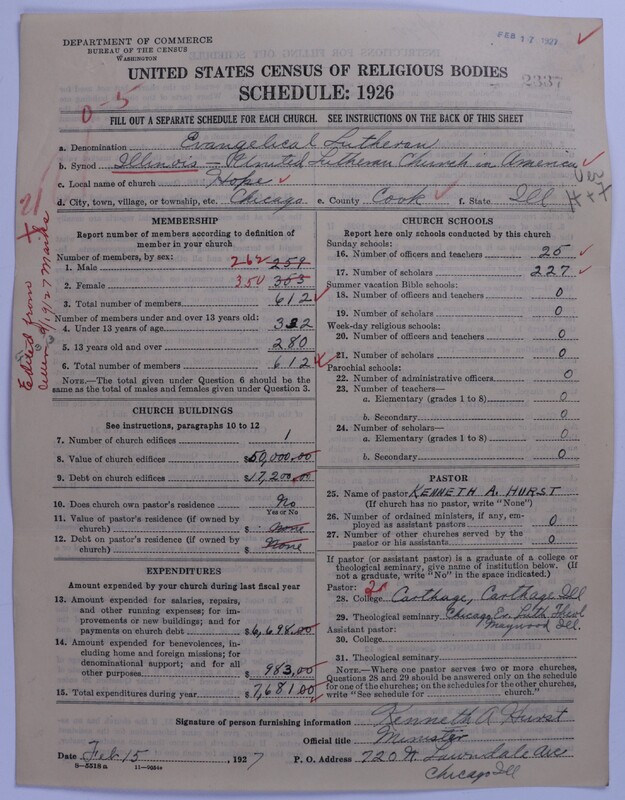 DEPARTMENT OF COMMERCE
BUREAU OF THE CENSUS
WASHINGTON
FEB 17 1927
UNITED STATES CENSUS OF RELIGIOUS BODIES
2337
SCHEDULE: 1926
0-5
FILL OUT A SEPARATE SCHEDULE FOR EACH CHURCH. SEE INSTRUCTIONS ON THE BACK OF THIS SHEET
a. Denomination Evangelical Lutheran
b. Synod Illinois - United Lutheran Church in America
c. Local name of church Hope
d. City, town, village, or township, etc. Chicago e. County Cook f. State Ill
MEMBERSHIP
Report number of members according to definition of member in your church
Number of members, by sex:
1. Male 262 259
2. Female 350 353
3. Total number of members 612
Number of members under and over 13 years old:
4. Under 13 years of age 332
5. 13 years old and over 280
6. Total number of members 612
NOTE.—The total given under Question 6 should be
same as the total of males and females given under Question 3.
CHURCH BUILDINGS
See instructions, paragraphs 10 to 12
7. Number of church edifices 1
8. Value of church edifices $50,000.00
9. Debt on church edifices $17,200.00
10. Does church own pastor's residence No
Yes or No
11. Value of pastor's residence (if owned by
church) $ None
12. Debt on pastor's residence (if owned by
church) $ None
EXPENDITURES
Amount expended by your church during last fiscal year
13. Amount expended for salaries, repairs,
and other running expenses; for im-
provements or new buildings; and for
payments on church debt $6,698.00
14. Amount expended for benevolences, in-
cluding home and foreign missions; for
denominational support; and for all
other purposes $ 983,00
15. Total expenditures during year $7,681.00
CHURCH SCHOOLS
Report here only schools conducted by this church
Sunday schools:
16. Number of officers and teachers 25
17. Number of scholars 227
Summer vacation Bible schools:
18. Number of officers and teachers 0
19. Number of scholars 0
Week-day religious schools:
20. Number of officers and teachers 0
21. Number of scholars 0
Parochial schools:
22. Number of administrative officers 0
23. Number of teachers—
a. Elementary (grades 1 to 8) 0
b. Secondary 0
24. Number of scholars—
a. Elementary (grades 1 to 8) 0
b. Secondary 0
PASTOR
25. Name of pastor KENNETH A. HURST
(If church has no pastor, write "None")
26. Number of ordained ministers, if any, em-
ployed as assistant pastors 0
27. Number of other churches served by the
pastor or his assistants 0
If pastor (or assistant pastor) is a graduate of a college or
theological seminary, give name of institution below. (If
not a graduate, write "No" in the space indicated.)
Pastor:
28. College Carthage, Carthage Ill
29. Theological seminary Chicago Ev. Luth Theol
Maywood Ill.
Assistant pastor:
30. College
31. Theological seminary
NOTE.—Where one pastor serves two or more churches,
Questions 28 and 29 should be answered only on the schedule
for one of the churches; on the schedules for the other churches,
write "See schedule for church."
Signature of person furnishing information Kenneth A Hurst
Official title Minister
Date Feb 15, 1927 P. O. Address 720 N. Lawndale Ave
8—5518 a 11—9024
Chicago Ill